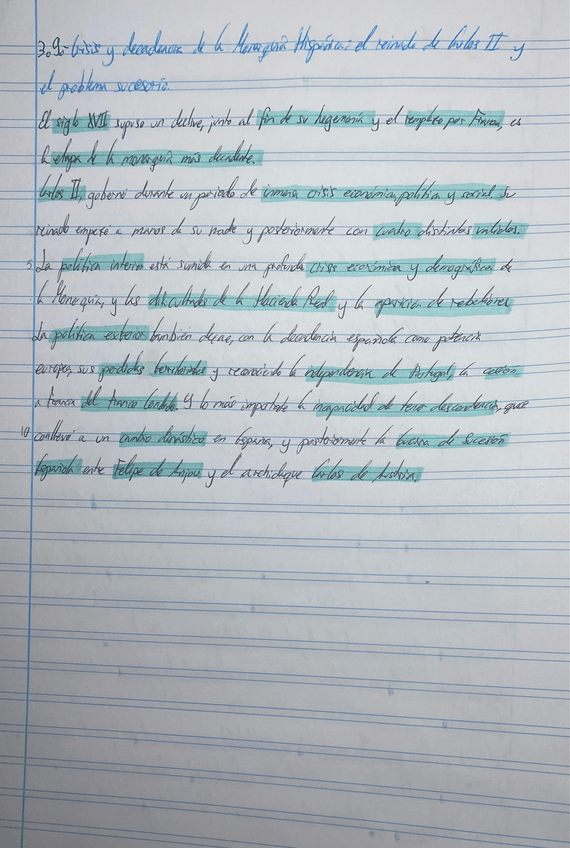 3.9.- Crisis y decadencia de la Monarquía Hispánica: el reinado de Carlos II y
el problema sucesorio.
El siglo XVII supuso un declive, junto al fin de su hegemonía y el remplazo por Francia, es
la etapa de la monarquía más decadente.
Carlos II, gobernó durante un periodo de inmensa crisis económica, política y social. Su
reinado empezó a manos de su madre y posteriormente con cuatro distintos validos.
5 La política interior está sumida en una profunda crisis económica y demográfica de
la Monarquía, y las dificultades de la Hacienda Real y la aparición de rebeliones
La política exterior también decae, con la decadencia española como potencia
europea, sus perdidas territoriales y reconociendo la independencia de Portugal, la cesión
a Francia del Franco Condado y lo más importante la incapacidad de tener descendencia, que
10 conllevó a un cambio dinástico en España, y posteriormente la Guerra de Sucesión
Española entre Felipe de Anjou y el archiduque Carlos de Austria.